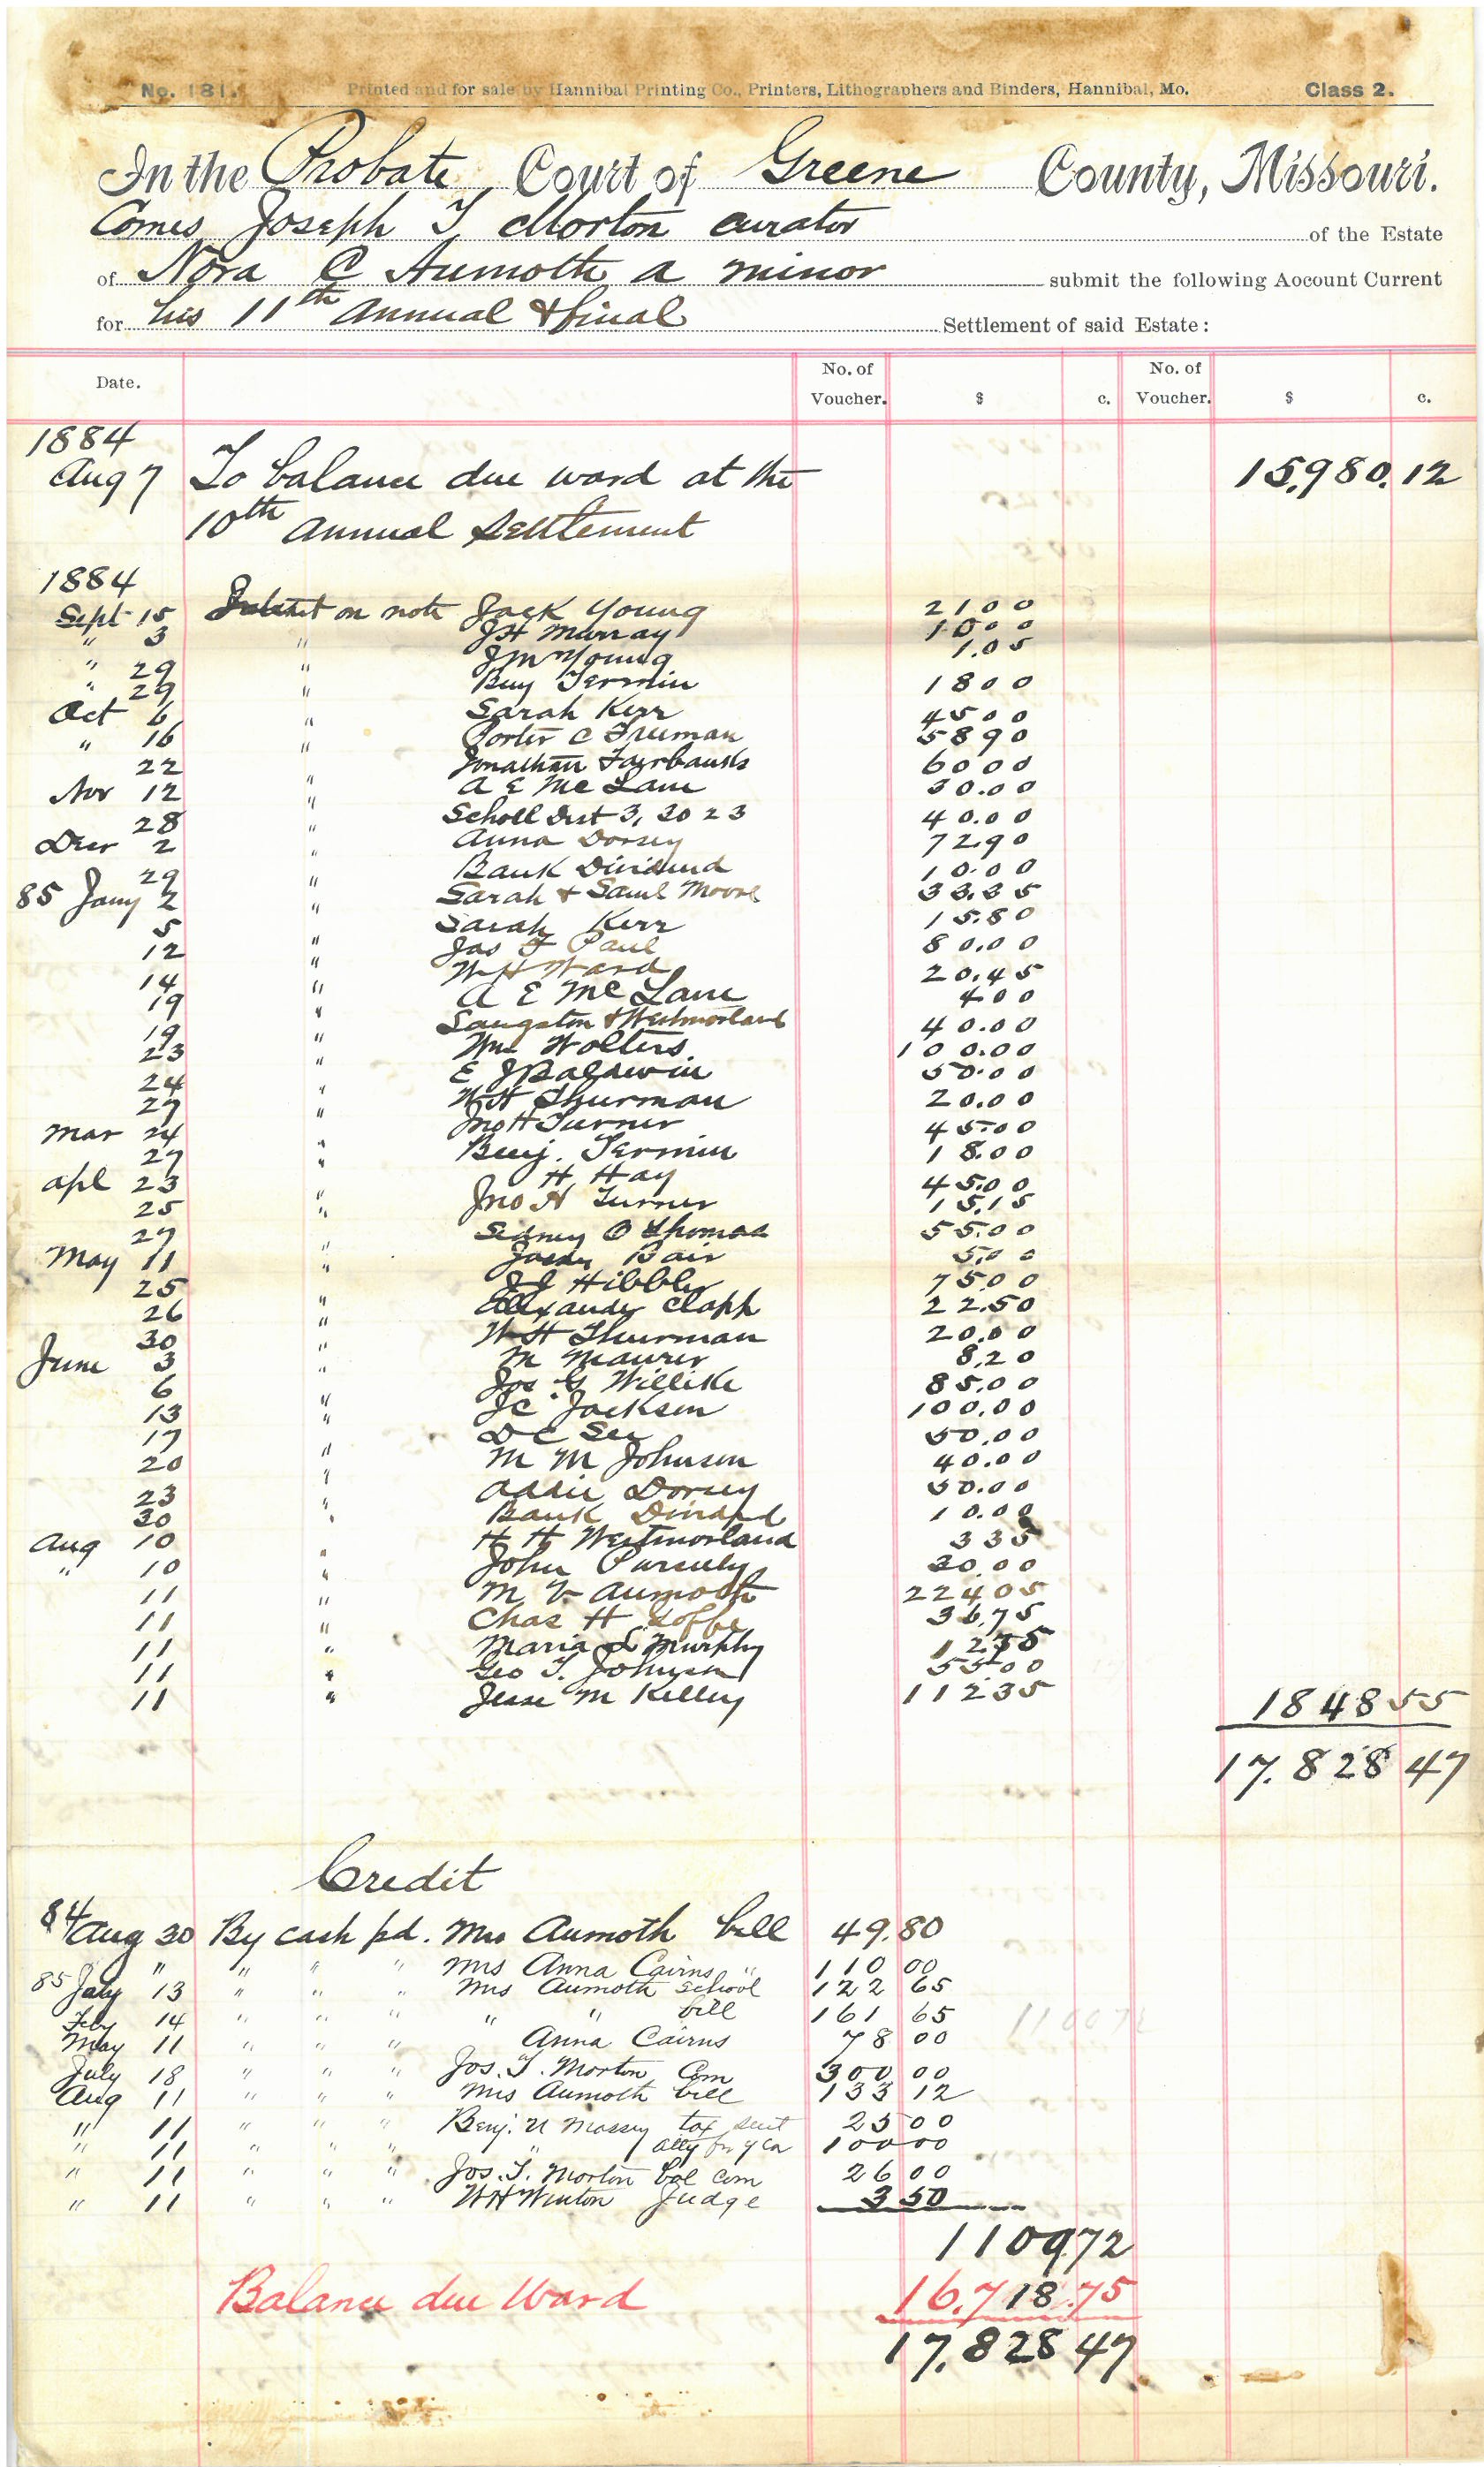 No. 181. Printed and for sale by Hannibal Printing Co., Printers, Lithographers and Binders, Hannibal, Mo. Class 2.
In the Probate Court of Greene County, Missouri.
Comes Joseph T. Morton curator of the Estate
of Nora C Aumoth a minor submit the following Aocount Current
for his 11th Annual & final Settlement of said Estate:
Date. No. of Voucher. $ c. No. of Voucher. $ c.
1884
Aug 7 To balance due ward at the 15,980.12
10th Annual Settlement
1884
Sept 15 Interest on note Jack Young 21 00
" 3 " JH Murray 10 00
" 29 " JM Young 1.05
" 29 " Benj Termin 18 00
Oct 6 Sarah Kerr 45 00
" 16 " Porter C Freeman 58 90
22 " Jonathan Fairbanks 60 00
Nov 12 " A E McLane 30.00
28 " Scholl Dist 3, 30 23 40.00
Decr 2 Anna Dorsey 72.90
29 " Bank Dividend 10.00
85 Jany 2 " Sarah & Saml Moore 33.35
5 " Sarah Kerr 15.80
12 " Jas F Paul 80.00
14 " W H Ward 20.45
19 " A E McLane 4 00
19 " Langston & Westmorland 40.00
23 " Wm Wolters 100.00
24 " E J Baldwin 50.00
27 " W H Thurman 20.00
Mar 24 " Jno H Turner 45.00
27 " Benj. Termin 18.00
Apl 23 " H Hay 45.00
25 " Jno H Turner 15.15
27 " Sidney O Thomas 55.00
May 11 " Bair 5.00
25 " J J Hibbler 75.00
26 " Alexander Clapp 22.50
30 " W H Thurman 20.00
June 3 " M Maurer 8.20
6 " Jos G Willike 85.00
13 " JC Jackson 100.00
17 " D C See 50.00
20 " M M Johnson 40.00
23 " Addie Dorsey 50.00
30 " Bank Divided 10.00
Aug 10 H H Westmorland 3 35
" 10 " John Pursely 30.00
11 " M V Aumoth 224 05
11 " Chas H Goffe 36.75
11 " Maria L Murphy 12 35
11 " Geo T. Johnson 55 00
11 " Jesse M Kelley 112 35 1848 55
17.828 47
Credit
84 Aug 30 By cash pd. Mrs Aumoth bill 49.80
" " " " Mrs Anna Cairns " 110 00
85 July 13 " " " Mrs Aumoth school 122 65
Feby 14 " " " " " bill 161 65 1100 72
May 11 " " " Anna Cairns 78 00
July 18 " " " Jos. T. Morton Com 300 00
Aug 11 " " " Mrs Aumoth bill 133 12
" 11 " " " Benj. U Massey tax suit 25 00
" 11 " " " " atty for 100 00
" 11 " " " Jos. T. Morton bal com 26 00
" 11 " " " W H Winton Judge 3 50
1109.72
Balance due Ward 16.718.75
17.828 47